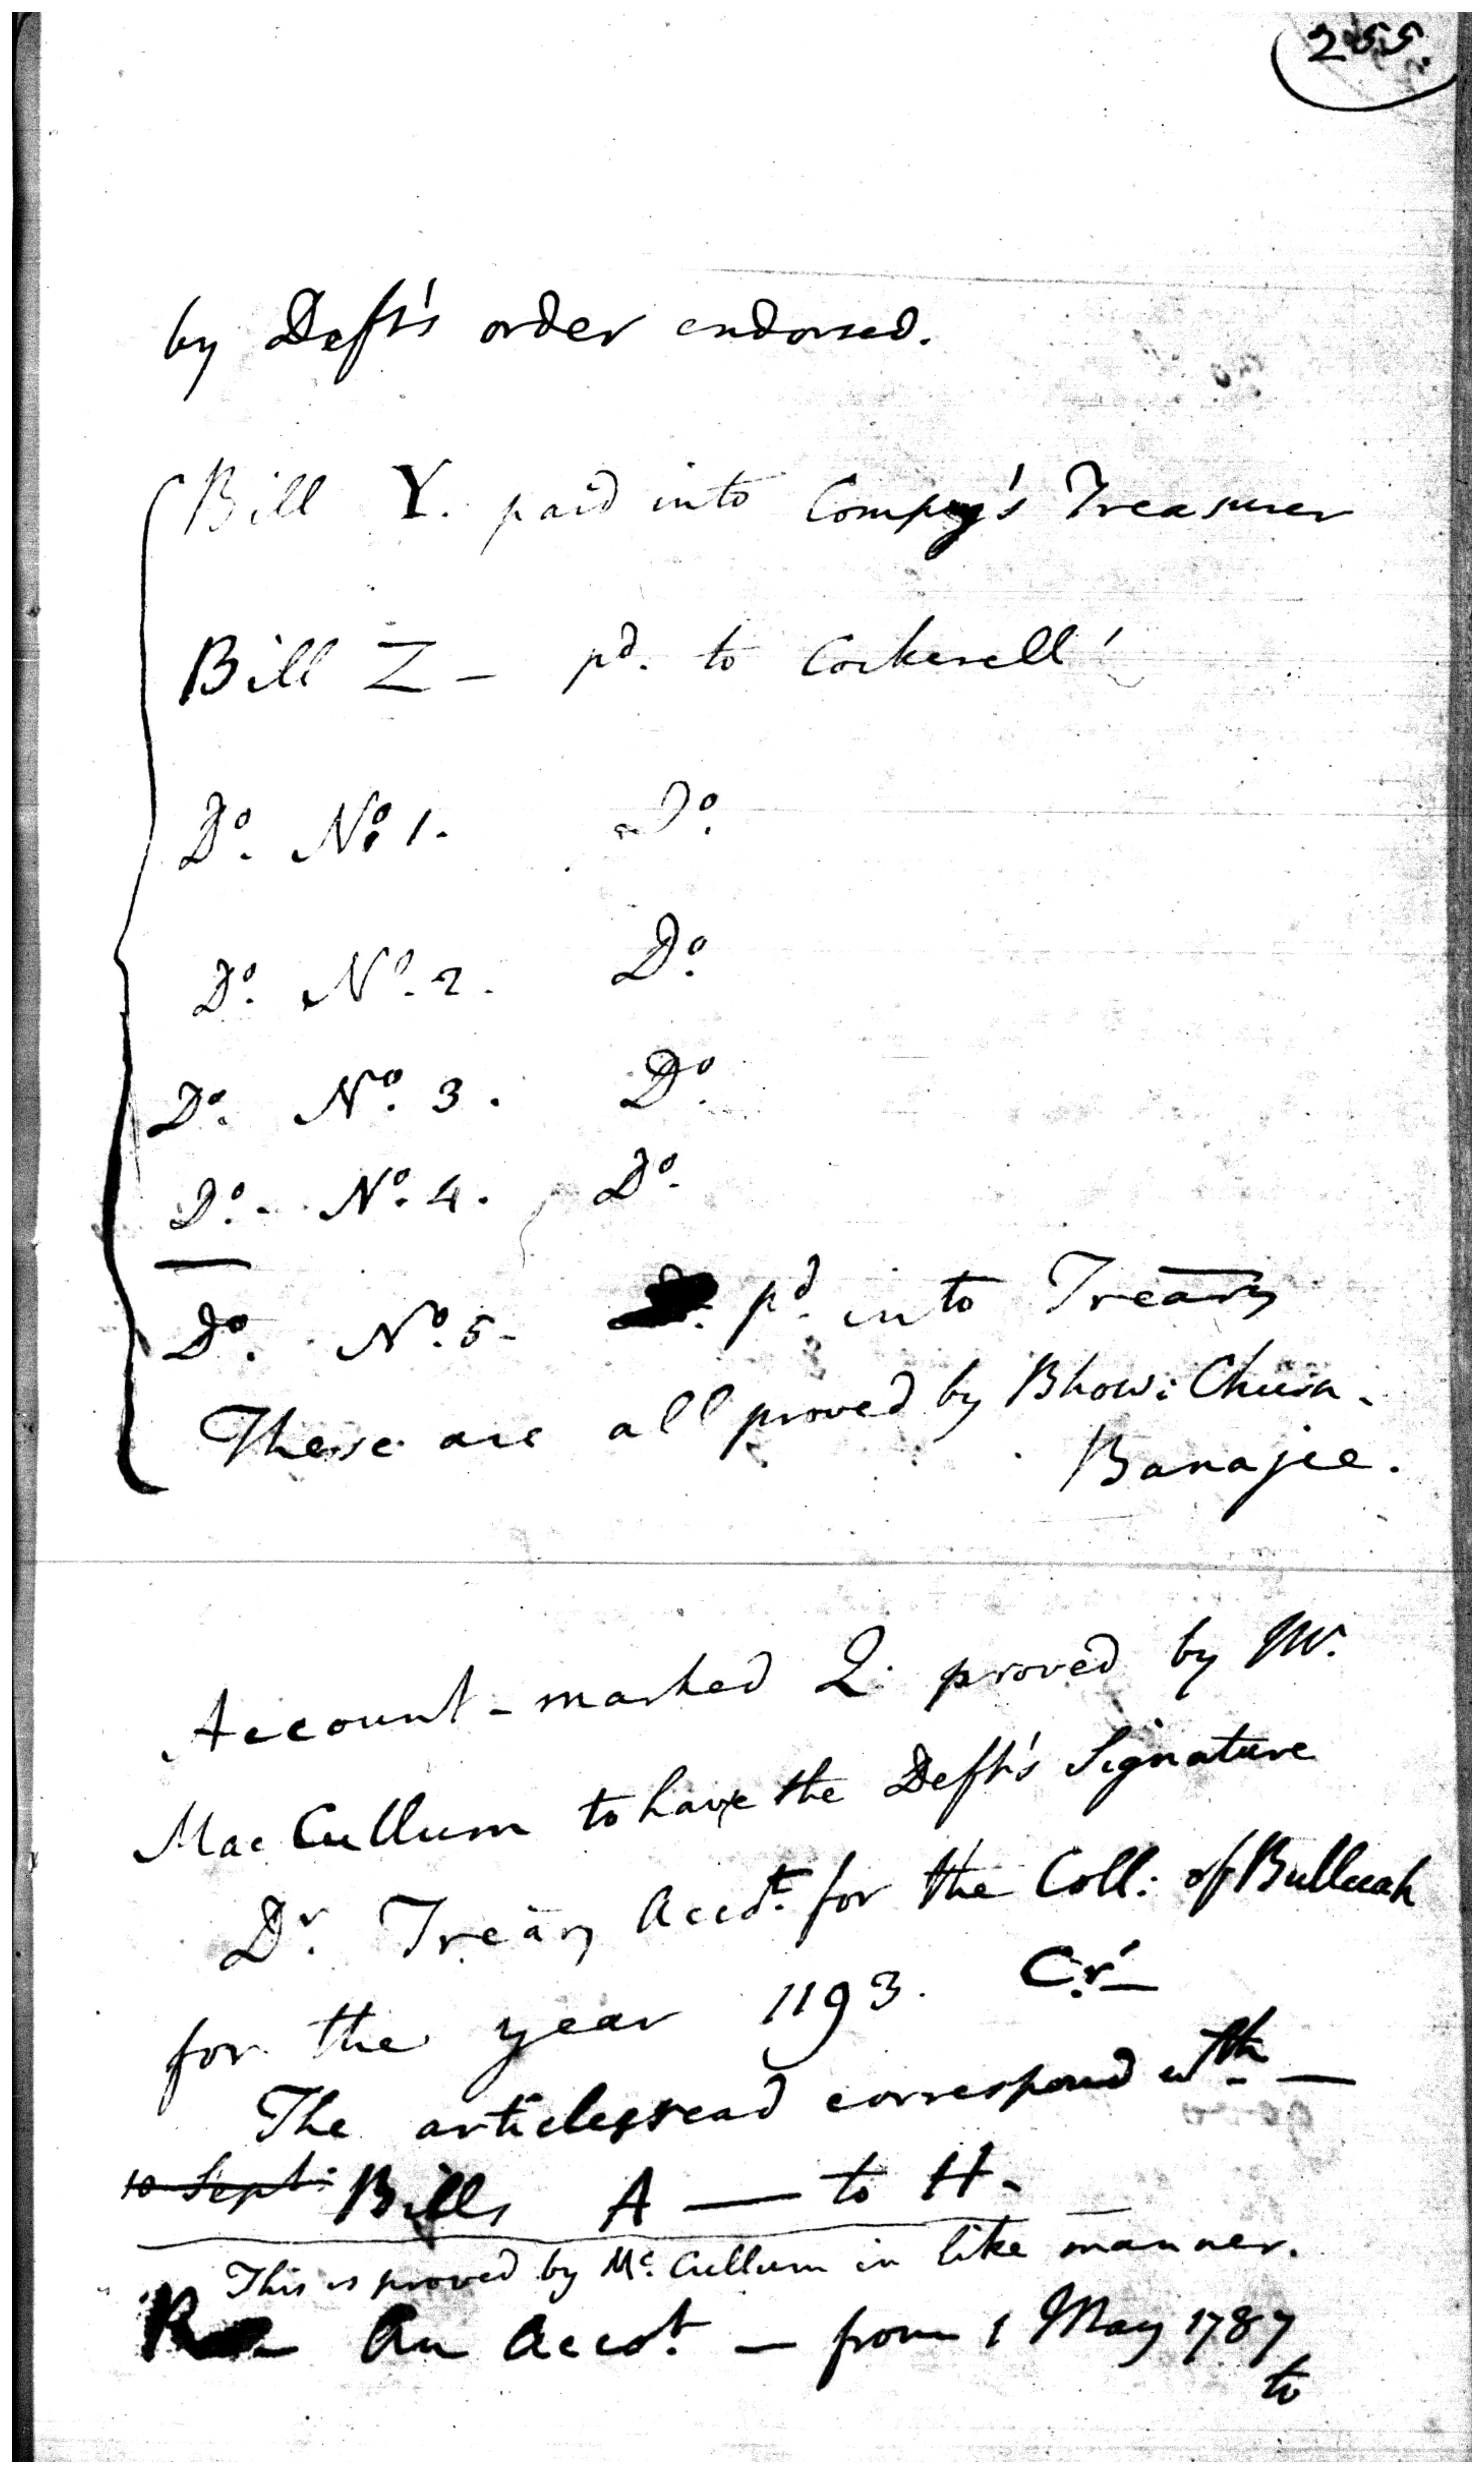 255.
by Deft's order endorsed.
Bill Y. paid into Compy's Treasurer
Bill Z - pd. to Cockerell
Do. No. 1. Do.
Do. No. 2. Do.
Do. No. 3. Do.
Do. - No. 4. Do.
Do. No. 5 - pd. into Treasy
These are all proved by Bhow: Churn.
Banajee.
Account - marked Q. proved by Mr.
Mac Cullum to have the Deft's Signature
Dr. Treasy Accot. for the Coll: of Bulleah
for the year 1193. Cr. -
The articles read correspond wth. -
10 Sept: Bills A — to H -
This is proved by Mc. Cullum in like manner.
R - An Accot. - from 1 May 1787
to